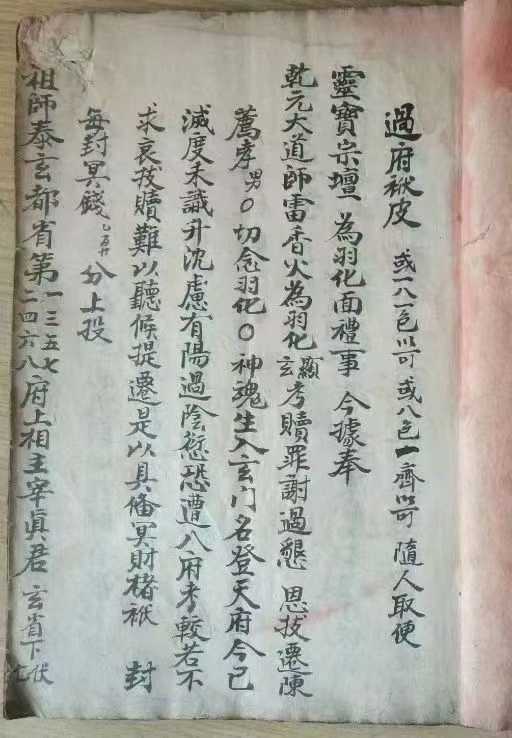 過府袱皮 或一八一色以可或八色一齊以可 隨人取便
靈寶宗壇 為羽化面禮事 今據奉
乾元大道師雷香火為羽化顯玄考贖罪謝過懇 恩拔遷陳
薦孝男〇切念羽化〇神魂生入玄门名登天府今已
滅度未識升沈慮有陽過陰愆恐遭八府考較若不
求哀拔贖難以聽候提遷是以具俻冥財楮袱 封
每封冥錢 分上投
祖師泰玄都省第一三五七二四六八府上相主宰眞君 玄省下伏